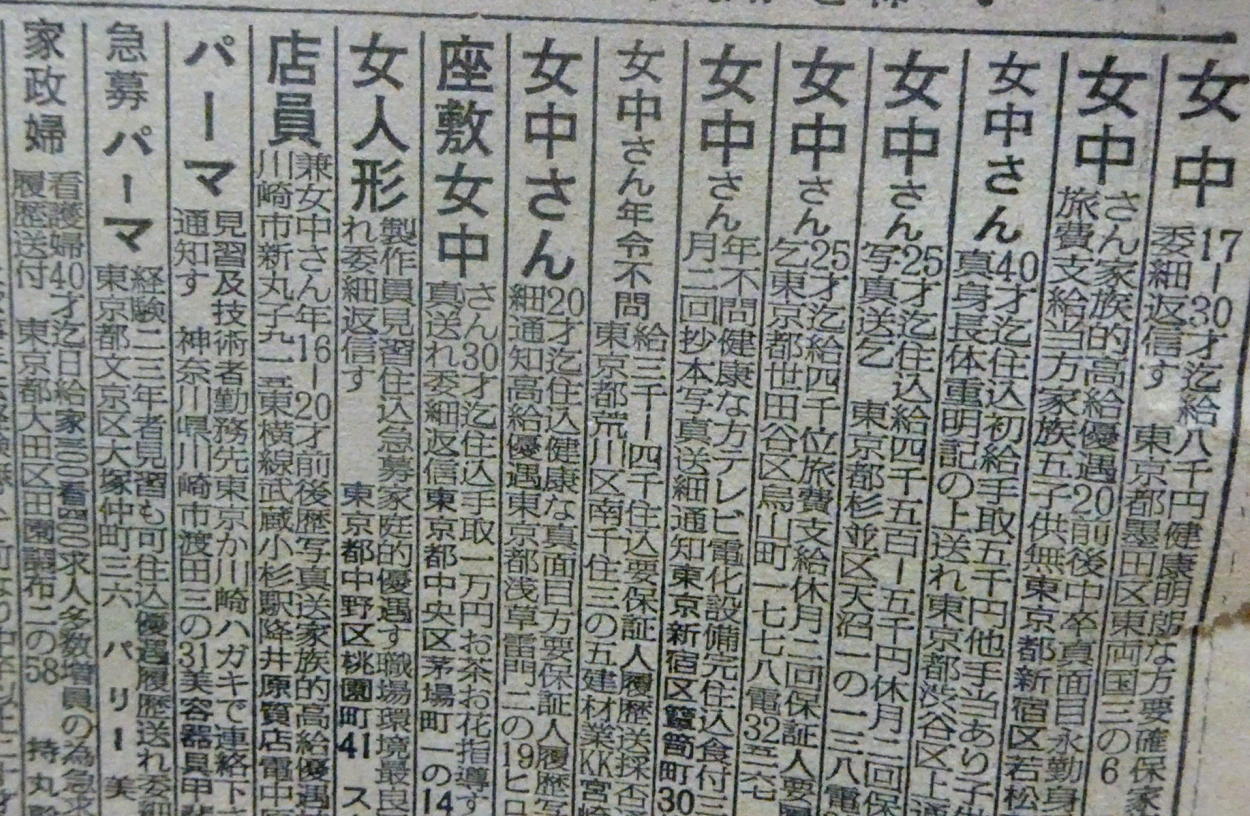 女中
17-30才迄給八千円健康明朗な方要確保家
委細返信す　東京都墨田区東両国三の6
女中
さん家族的高給優遇20前後中卒真面目永勤身
旅費支給当方家族五子供無東京都新宿区若松
女中さん
40才迄住込初給手取五千円他手当あり子
真身長体重明記の上送れ東京都渋谷区上通
女中さん
25才迄住込給四千五百ー五千円休月三回保
写真送乞　東京都杉並区天沼一の二三八電
女中さん
25才迄給四千位旅費支給休月二回保証人要履
乞東京都世田谷区烏山町一七七八電32
女中さん
年不問健康な方テレビ電化設備完住込食付三
月二回抄本写真送細通知東京新宿区簞笥町30
女中さん年令不問
給三千ー四千住込要保証人履歴送採否通
東京都荒川区南千住三の五建材業KK宮崎
女中さん
20才迄住込健康な真面目方要保証人履歴写
細通知高給優遇東京都浅草雷門二の19ヒロ
座敷女中
さん30才迄住込手取一万円お茶お花指導す
真送れ委細返信東京都中央区茅場町一の14
女人形
製作員見習住込急募家庭的優遇す職場環境最良
れ委細返信す　東京都中野区桃園町41　ス
店員
兼女中さん年16-20才前後歴写真送家族的高給優遇
川崎市新丸子九一五東横線武蔵小杉駅降井原質店電中原
パーマ
見習及技術者勤務先東京か川崎ハガキで連絡下
通知す　神奈川県川崎市渡田三の31美容器具甲斐
急募パーマ
経験二三年者見習も可住込優遇履歴送れ委細
東京都文京区大塚仲町三六　パリー美
家政婦
看護婦40才迄日給家三三〇看四三〇求人多数増員の為急求
履歴送付　東京都大田区田園調布二の58　持丸